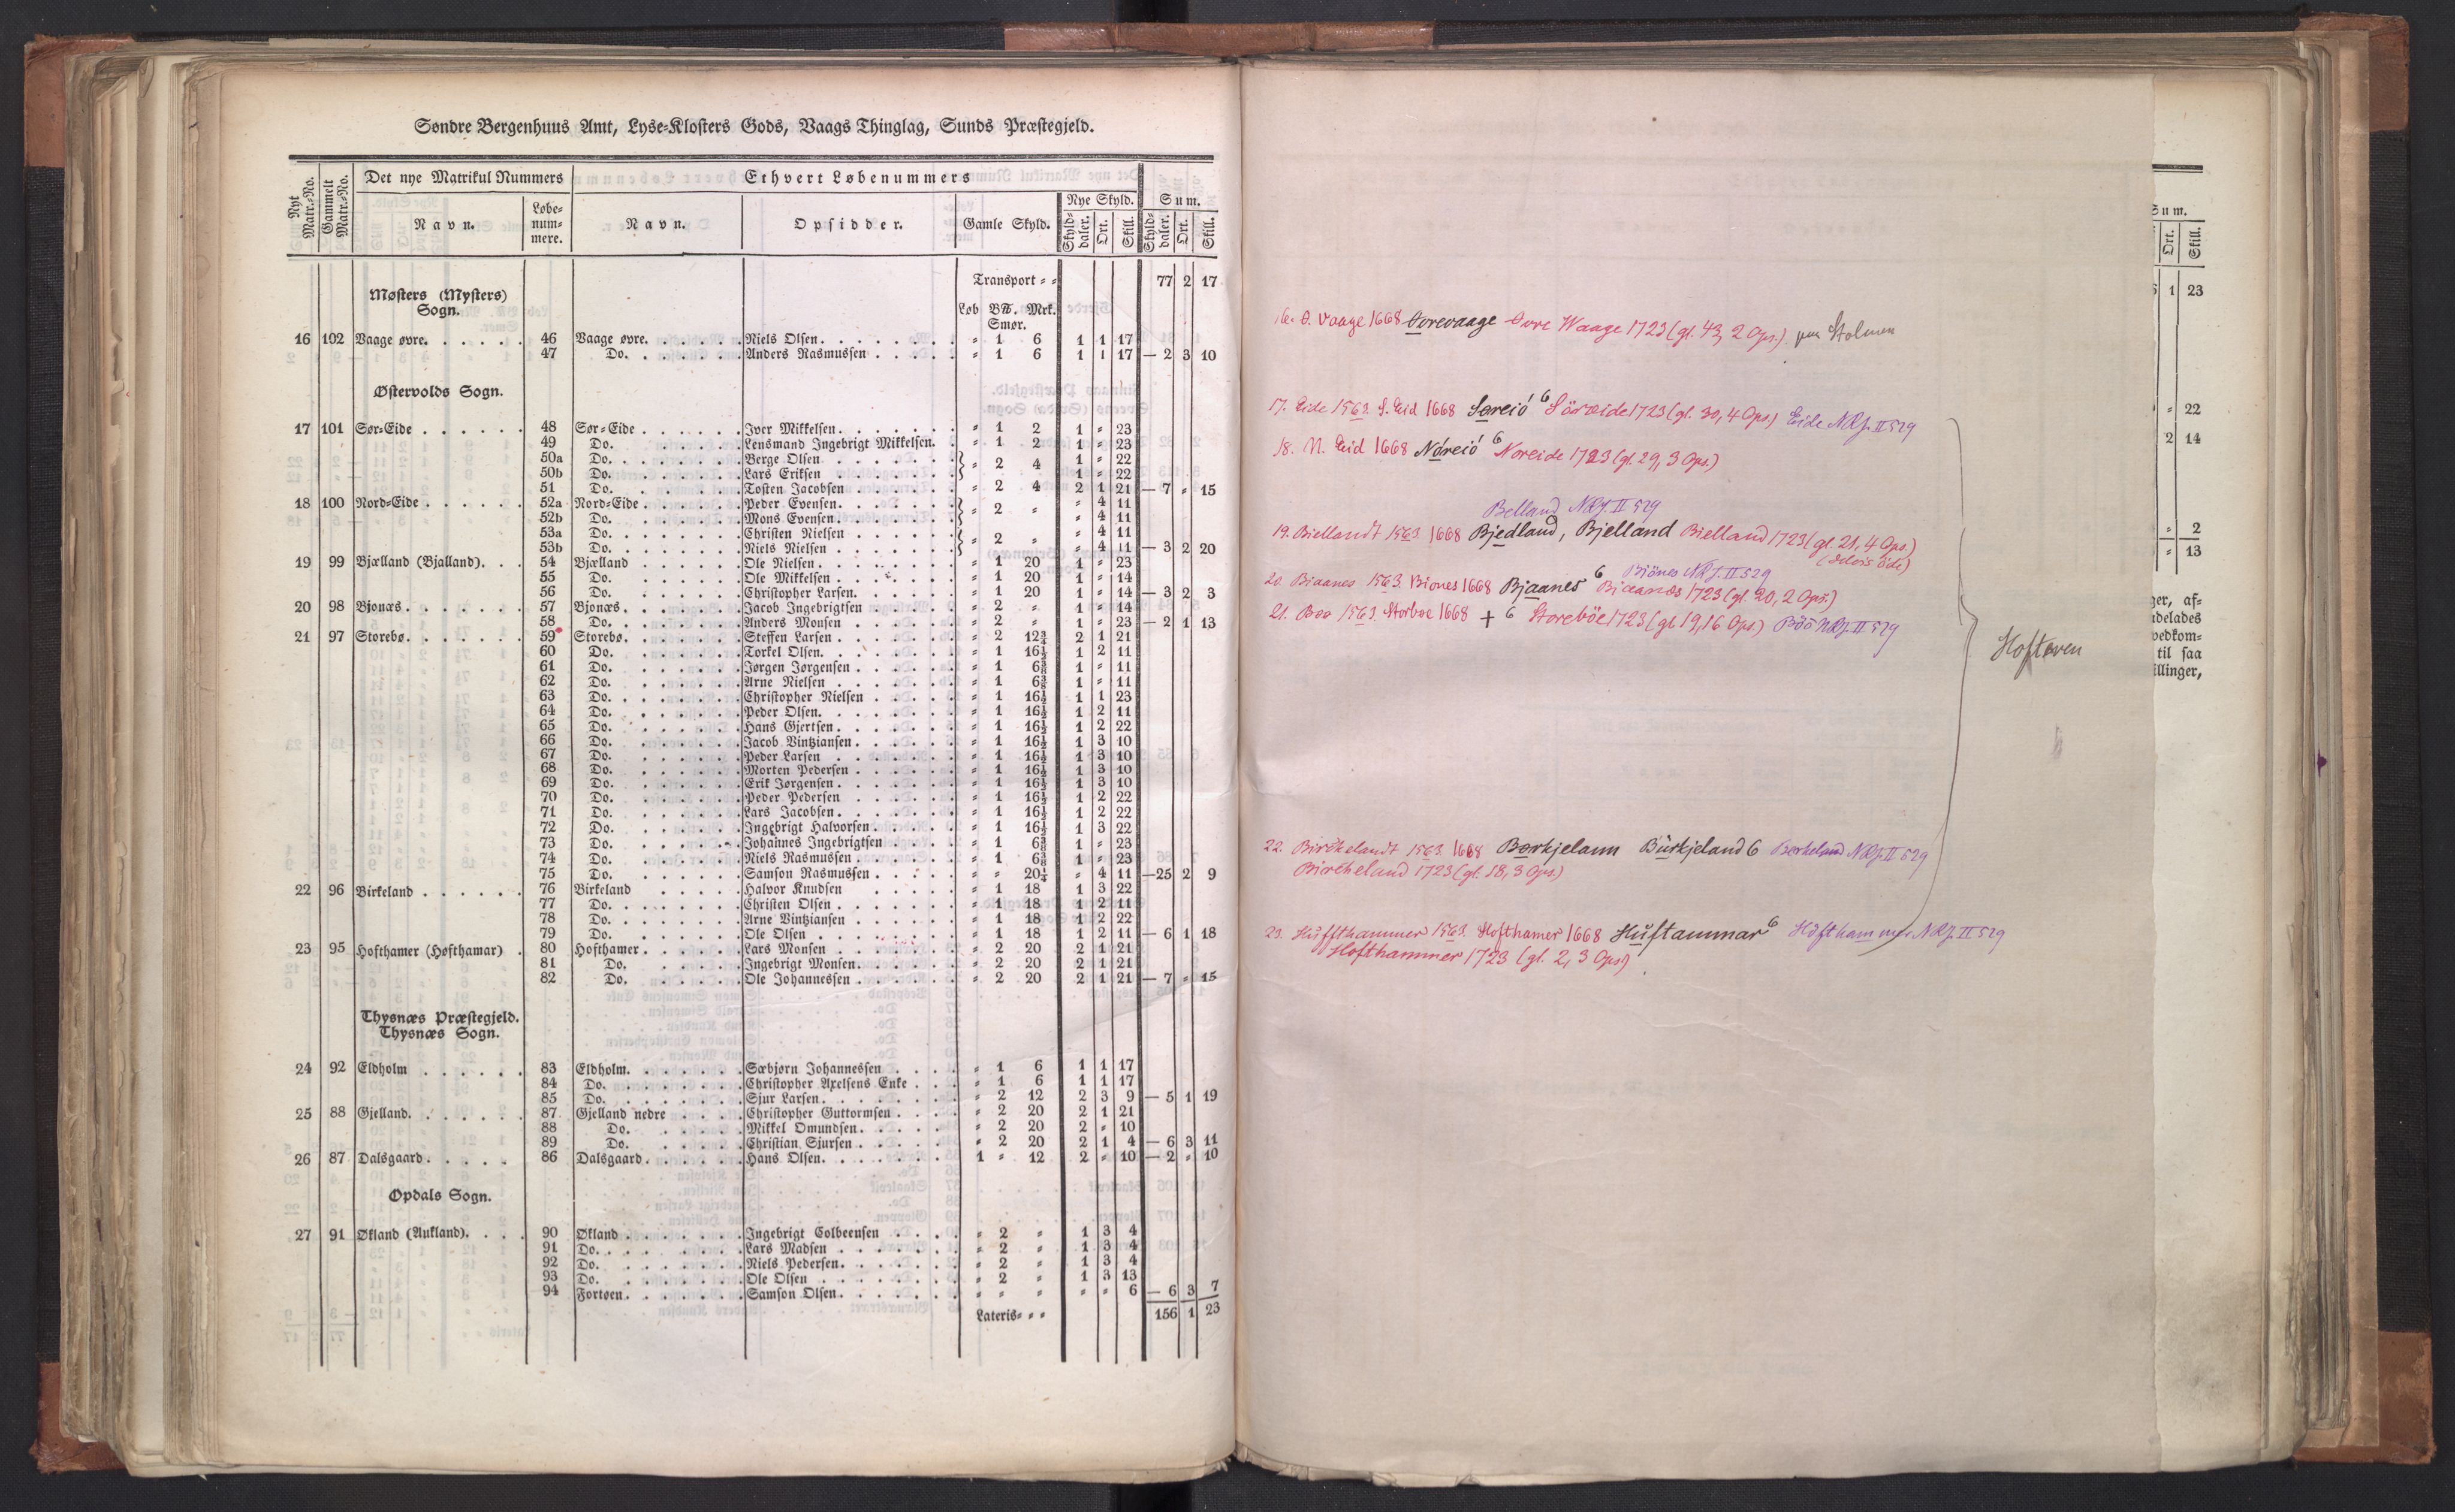 Søndre Bergenhuus Amt, Lyse-Klosters Gods, Vaags Thinglag, Sunds Præstegjeld.
Nyt Matr.-No. Gammelt Matr.-No. Det nye Matrikul Nummers Ethvert Løbenummers
Navn. Løbe-nummere. Navn. Opsidder. Gamle Skyld. Nye Skyld. Sum.
Skylddaler. Ort. Skill. Skylddaler. Ort. Skill.
Transport = = 77 2 17
Møsters (Mysters) Sogn.
Løb B℔. Mrk. Smør.
16 102 Vaage øvre. 46 Vaage øvre. Niels Olsen. = 1 6 1 1 17
47 Do. Anders Rasmussen = 1 6 1 1 17 — 2 3 10
Østervolds Sogn.
17 101 Sør-Eide 48 Sør-Eide Iver Mikkelsen. = 1 2 1 = 23
49 Do. Lensmand Ingebrigt Mikkelsen. = 1 2 1 = 23
50a Do. Berge Olsen } = 2 4 1 = 22
50b Do. Lars Eriksen 1 = 22
51 Do. Tosten Jacobsen = 2 4 2 1 21 — 7 = 15
18 100 Nord-Eide 52a Nord-Eide Peder Evensen. } = 2 = = 4 11
52b Do. Mons Evensen. = 4 11
53a Do. Christen Nielsen } = 2 = = 4 11
53b Do. Niels Nielsen = 4 11 — 3 2 20
19 99 Bjælland (Bjalland). 54 Bjælland Ole Nielsen. = 1 20 1 = 23
55 Do. Ole Mikkelsen = 1 20 1 = 14
56 Do. Christopher Larsen. = 1 20 1 = 14 — 3 2 3
20 98 Bjonæs. 57 Bjonæs. Jacob Ingebrigtsen = 2 = 1 = 14
58 Do. Anders Monsen = 2 = 1 = 23 — 2 1 13
21 97 Storebø. 59 Storebø. Steffen Larsen = 2 12¾ 2 1 21
60 Do. Torkel Olsen. = 1 16½ 1 2 11
61 Do. Jørgen Jørgensen = 1 6⅜ 1 = 11
62 Do. Arne Nielsen = 1 6⅜ 1 = 11
63 Do. Christopher Nielsen = 1 16½ 1 1 23
64 Do. Peder Olsen. = 1 16½ 1 2 11
65 Do. Hans Gjertsen = 1 16½ 1 2 22
66 Do. Jacob Vintziansen. = 1 16½ 1 3 10
67 Do. Peder Larsen = 1 16½ 1 3 10
68 Do. Morten Pedersen = 1 16½ 1 3 10
69 Do. Erik Jørgensen = 1 16½ 1 3 10
70 Do. Peder Pedersen = 1 16½ 1 2 22
71 Do. Lars Jacobsen. = 1 16½ 1 2 22
72 Do. Ingebrigt Halvorsen = 1 16½ 1 3 22
73 Do. Johannes Ingebrigtsen = 1 6⅜ 1 = 23
74 Do. Niels Rasmussen = 1 6⅜ 1 = 23
75 Do. Samson Rasmussen = = 20¼ = 4 11 — 25 2 9
22 96 Birkeland 76 Birkeland Halvor Knudsen = 1 18 1 3 22
77 Do. Christen Olsen = 1 18 1 2 11
78 Do. Arne Vintziansen = 1 18 1 2 22
79 Do. Ole Olsen = 1 18 1 2 11 — 6 1 18
23 95 Hofthamer (Høfthamar) 80 Hofthamer Lars Monsen = 2 20 2 1 21
81 Do. Ingebrigt Monsen. = 2 20 2 1 21
82 Do. Ole Johannessen = 2 20 2 1 21 — 7 = 15
Thysnæs Præstegjeld.
Thysnæs Sogn.
24 92 Eldholm 83 Eldholm. Sæbjørn Johannessen = 1 6 1 1 17
84 Do. Christopher Axelsens Enke = 1 6 1 1 17
85 Do. Sjur Larsen. = 2 12 2 3 9 — 5 1 19
25 88 Gjelland. 87 Gjelland nedre Christopher Guttormsen = 2 20 2 1 21
88 Do. Mikkel Omundsen. = 2 20 2 = 10
89 Do. Christian Sjursen = 2 20 2 1 4 — 6 3 11
26 87 Dalsgaard. 86 Dalsgaard Hans Olsen. 1 = 12 2 = 10 — 2 = 10
Opdals Sogn.
27 91 Økland (Aukland). 90 Økland Ingebrigt Colbeensen = 2 = 1 3 4
91 Do. Lars Madsen = 2 = 1 3 4
92 Do. Niels Pedersen. = 2 = 1 3 4
93 Do. Ole Olsen = 2 = 1 3 13
94 Fortøen. Samson Olsen. = = = = = 6 — 6 3 7
Lateris = = = 156 1 23
16. Ø. Vaage 1668 Øvrevaage Øvre Waage 1723 (gl. 43, 2 Ops.) paa Stolmen
17. Eide 1563. S. Eid 1668 Søreió 6 Söreide 1723 (gl. 30, 4 Ops.) Eide NRJ. II 529
18. N. Eid 1668 Nóreió 6 Noreide 1723 (gl. 29, 3 Ops.)
Belland NRJ. II 529
19. Biellandt 1563. 1668 Bjedland, Bjelland Bielland 1723 (gl. 21, 4 Ops.)
20. Biaanes 1563. Biones 1668 Bjaanes 6 Biönes NRJ. II 529 Biaanes 1723 (gl. 20, 2 Ops.)
21. Boo 1563. Storboe 1668 + 6 Storeböe 1723 (gl. 19, 16 Ops.) Böö NRJ. II 529
Hoftøen
22. Birckelandt 1563. 1668 Børkjelann Bürkjeland 6 Berkeland NRJ. II 529
Bircheland 1723 (gl. 18, 3 Ops.)
23. Huffthammer 1563. Hofthamer 1668 Huftammar 6 Höfthammer NRJ. II 529
Hofthammer 1723 (gl. 2, 3 Ops.)
Sum.
Ort. Skill.
1 23
= 22
2 14
= 2
= 13
ger, af=
delades
vedkom=
til saa
illinger,